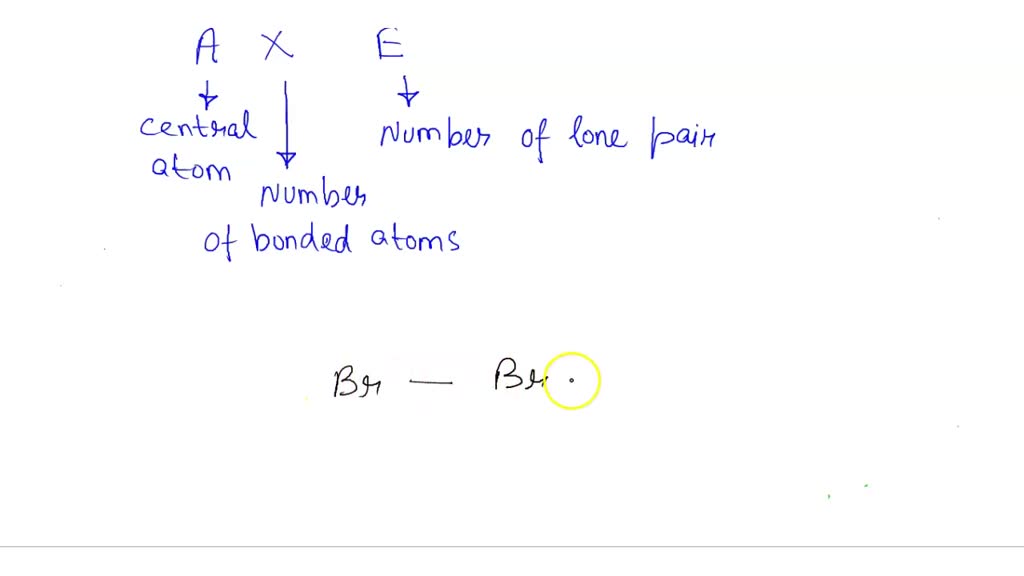 A X E
central
atom
Number of lone pair
Number
of bonded atoms
Br — Br